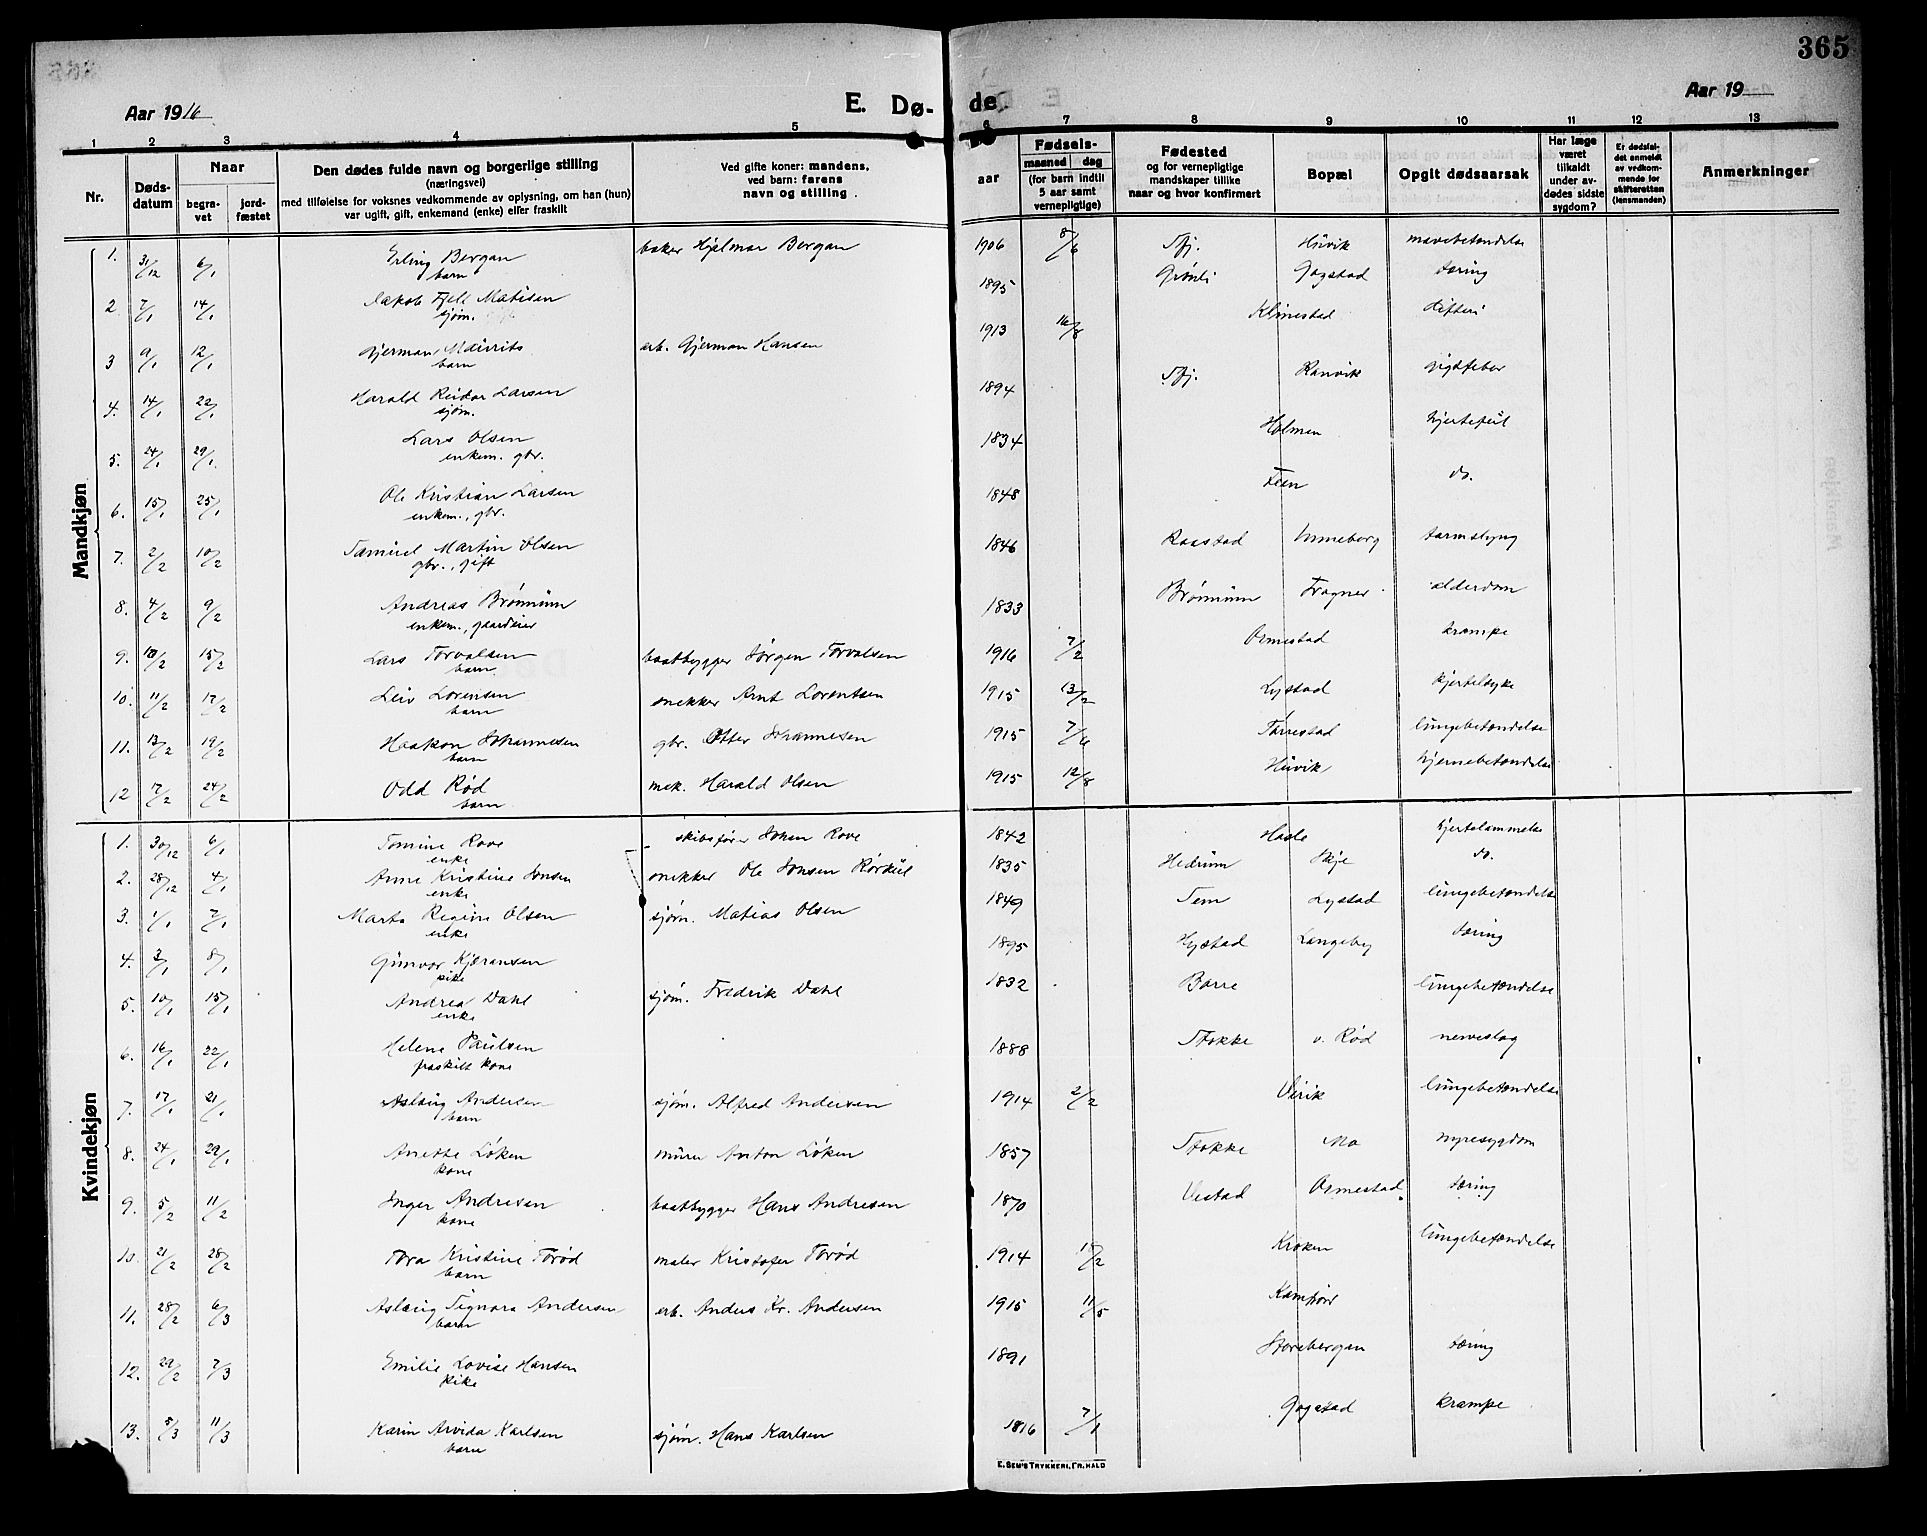 365
Aar 1916
E. Dø-
de
Aar 19
1 2 3 4 5 6 7 8 9 10 11 12 13
Nr.
Døds-
datum
Naar
begra-
vet
jord-
fæstet
Den dødes fulde navn og borgerlige stilling
(næringsvei)
med tilføielse for voksnes vedkommende av oplysning, om han (hun)
var ugift, gift, enkemand (enke) eller fraskilt
Ved gifte koner: mandens,
ved barn: farens
navn og stilling
aar
Fødsels-
maaned dag
(for barn indtil
5 aar samt
vernepligtige)
Fødested
og for vernepligtige
mandskaper tillike
naar og hvor konfirmert
Bopæl
Opgit dødsaarsak
Har læge
været
tilkaldt
under av-
dødes sidste
sygdom?
Er dødsfal-
det anmeldt
av vedkom-
mende for
skifteretten
(lensmanden)
Anmerkninger
Mandkjøn
1. 31/12 6/1 Erling Bergan baker Hjalmar Bergan 1906 8/6 Sfj. Huvik mavebetændelse
barn
2. 7/1 14/1 Jakob Fjell Matisen 1895 Grønli Gogstad tæring
sjøm.
3 9/1 12/1 Gjerman Maurits arb. Gjerman Hansen 1913 16/8 Klinestad difteri
barn
4. 14/1 22/1 Harald Reidar Larsen 1894 Sfj. Ranvik gigtfeber
sjøm.
5. 24/1 29/1 Lars Olsen 1834 Holmen hjertefeil
enkem. gbr.
6. 15/1 25/1 Ole Kristian Larsen 1848 Feen do.
enkem., gbr.
7. 2/2 10/2 Samuel Martin Olsen 1846 Raastad Unneberg tarmslyng
gbr., gift
8. 4/2 9/2 Andreas Brønnum 1833 Brønnum Fragner alderdom
enkem., gaardeier
9. 10/2 15/2 Lars Torvalsen baatbygger Jørgen Torvalsen 1916 7/2 Ormestad krampe
barn
10. 11/2 17/2 Leiv Lorensen snekker Arnt Lorentsen 1915 13/2 Lystad kjertelsyke
barn
11. 13/2 19/2 Haakon Johannesen gbr. Otter Johannesen 1915 7/6 Torrestad lungebetændelse
barn
12 17/2 24/2 Odd Rød mek. Harald Olsen 1915 12/8 Huvik hjernebetændelse
barn
Kvindekjøn
1. 30/12 6/1 Tomine Rove skibsfører Johan Rove 1842 Hasle hjertelammelse
enke
2. 28/12 4/1 Anne Kristine Jonsen snekker Ole Jonsen Rørkul 1835 Hedrum Skje do.
enke
3. 1/1 7/1 Marta Regine Olsen sjøm. Matias Olsen 1849 Sem Lystad lungebetændelse
enke
4. 3/1 8/1 Gunvor Kjæransen 1895 Hystad Langeby tæring
pike
5. 10/1 15/1 Andrea Dahl sjøm. Fredrik Dahl 1832 Borre lungebetændelse
enke
6. 16/1 22/1 Helene Paulsen 1888 Stokke v. Rød nerveslag
fraskilt kone
7. 17/1 21/1 Aslaug Andersen sjøm. Alfred Andersen 1914 2/2 Virik lungebetændelse
barn
8. 24/1 29/1 Anette Løken murer Anton Løken 1857 Stokke Mo nyresygdom
kone
9. 5/2 11/2 Inger Andresen baatbygger Hans Andresen 1870 Vestad Ormestad tæring
kone
10. 21/2 28/2 Tora Kristine Torød maler Kristofer Torød 1914 /2 Kroken lungebetændelse
barn
11. 28/2 6/3 Aslaug Signora Andersen arb. Anders Kr. Andersen 1915 11/5 Kamfjord
barn
12. 29/2 7/3 Emilie Lovise Hansen 1891 Storebergan tæring
pike
13. 8/3 11/3 Karin Arvida Karlsen sjøm. Hans Karlsen 1816 7/1 Gogstad krampe
barn
E. SEM'S TRYKKERI, FR.HALD